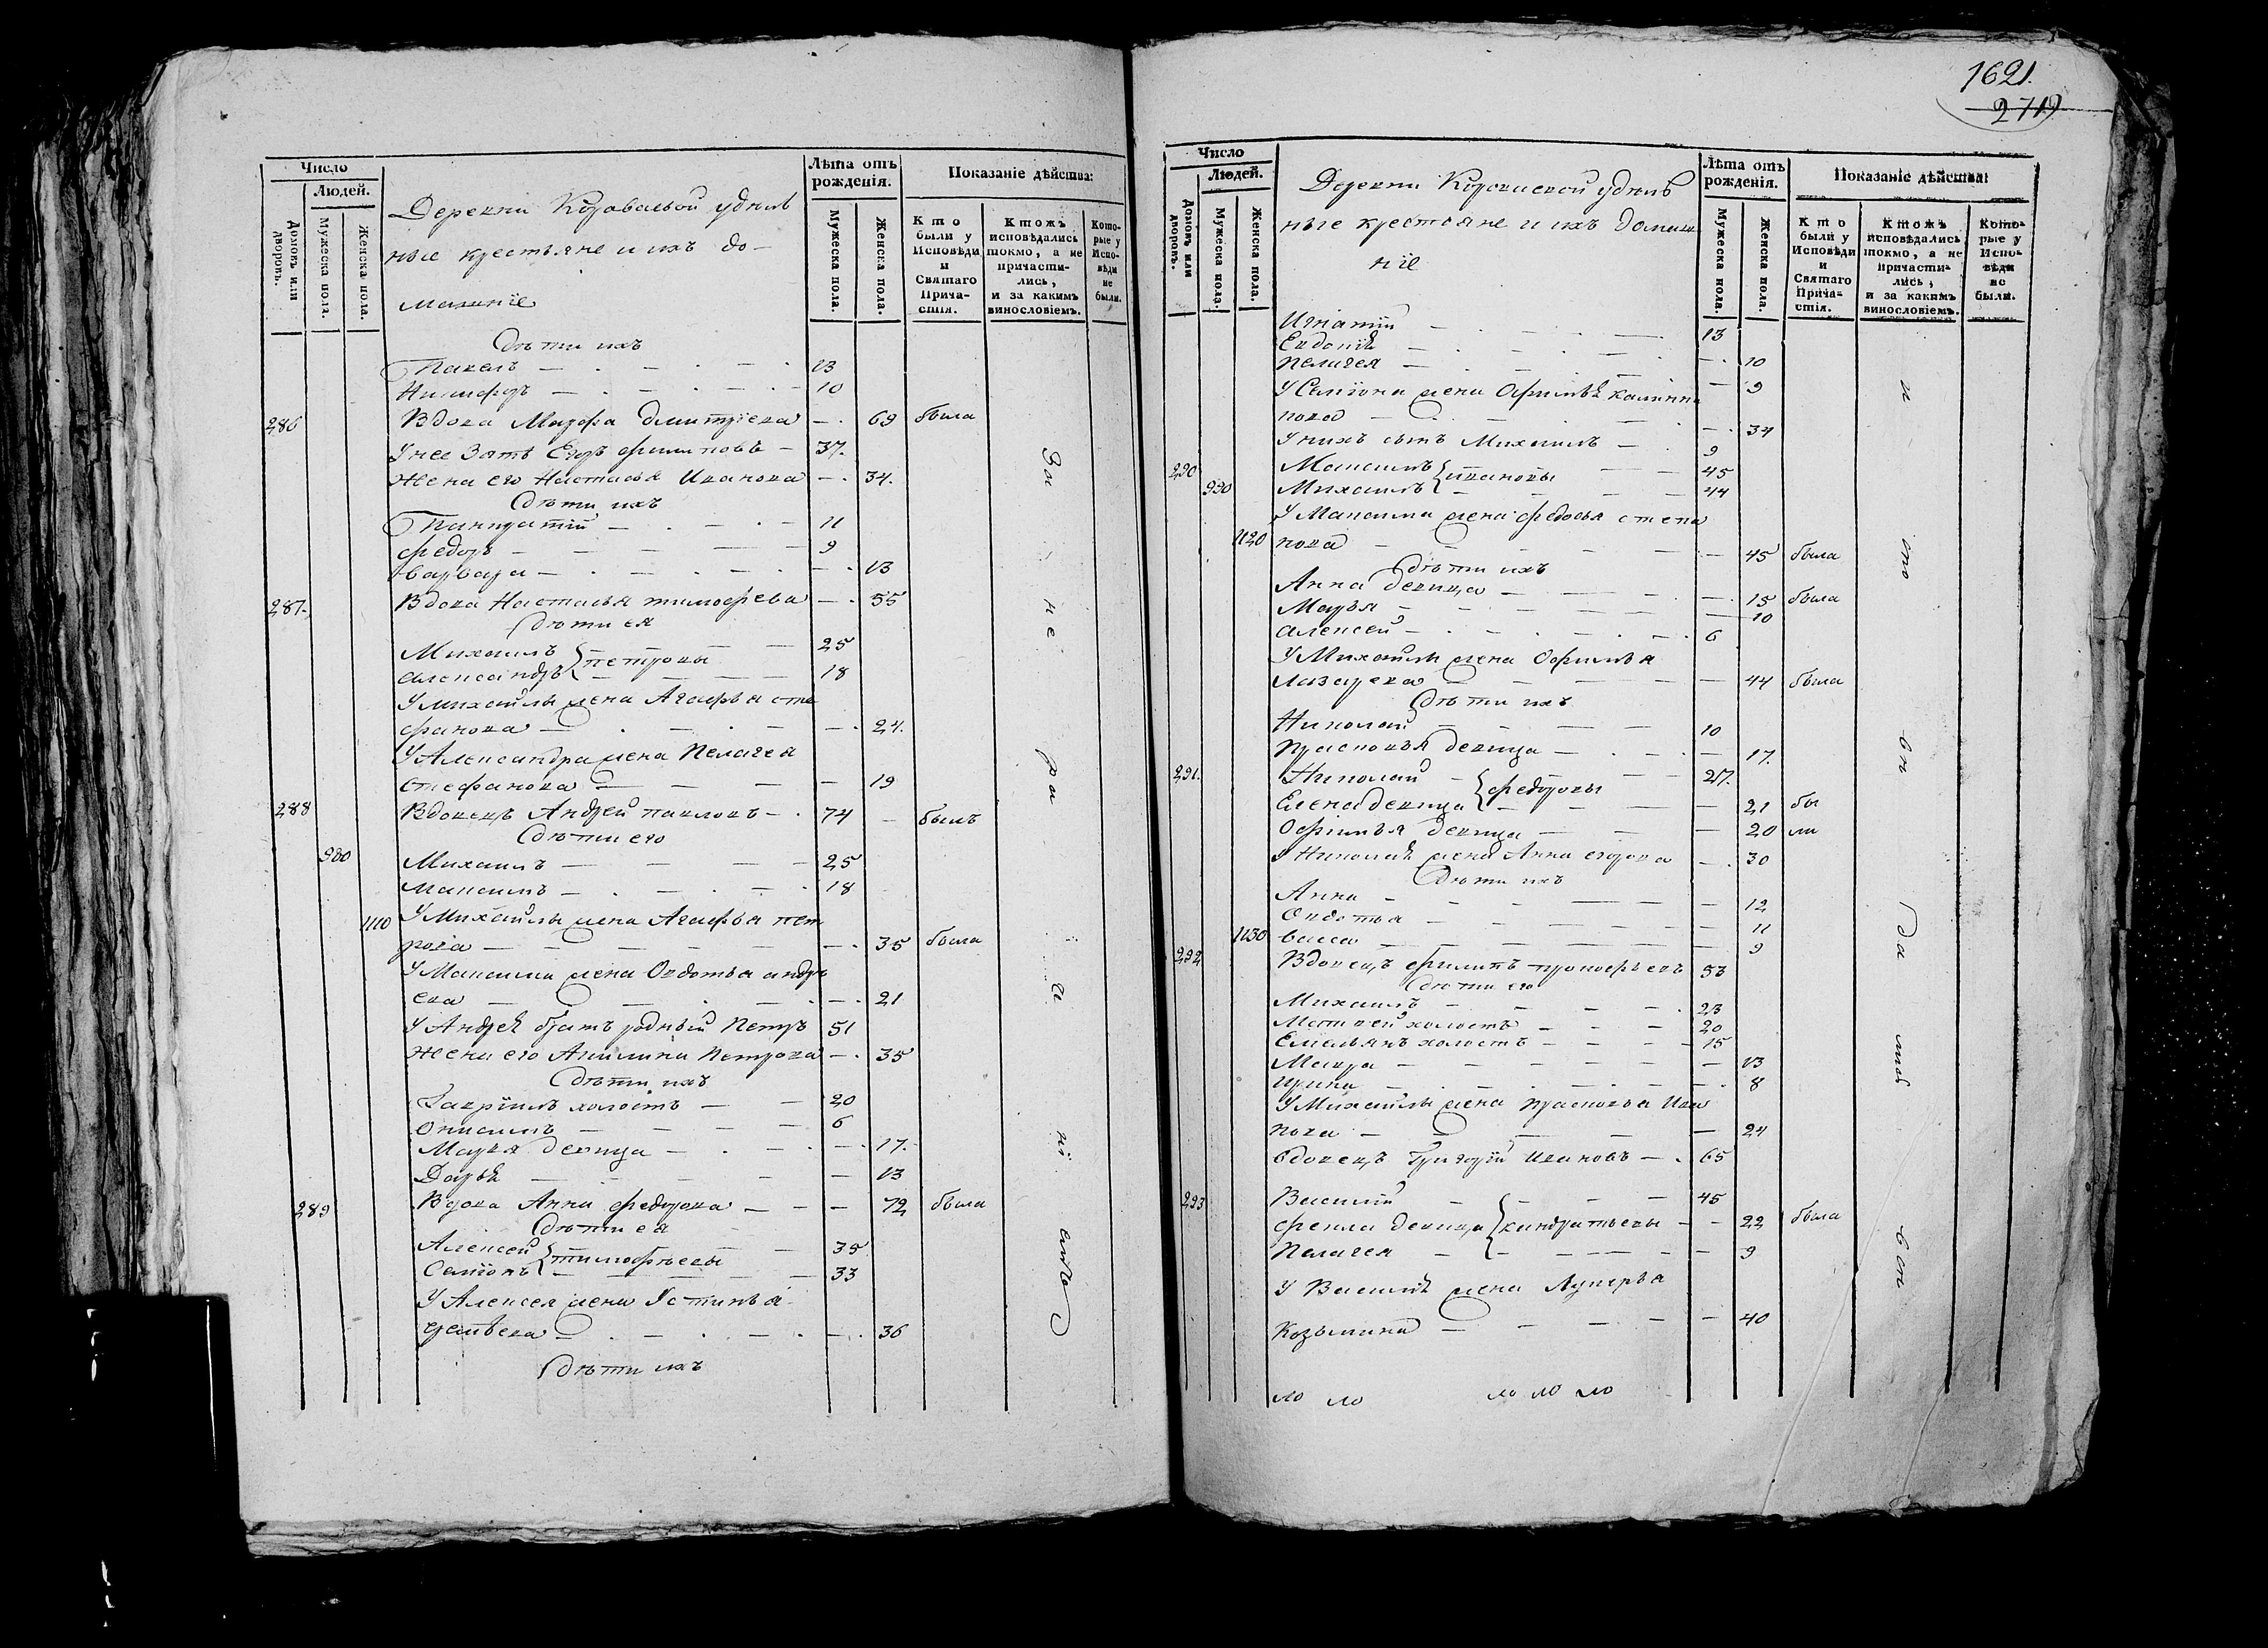 Число
Людей.
Домовъ или дворовъ.
Мужеска пола.
Женска пола.
Деревни удѣль
ные крестьяне и ихъ до-
машніе
Лѣта отъ рожденія.
Мужеска пола.
Женска пола.
Показаніе дѣйства:
Кто были у Исповѣди и Святаго Причастія.
Ктожъ исповѣдались токмо, а не причастились, и за какимъ винословіемъ.
Которые у Исповѣди не были.
Дѣти ихъ
Павелъ — 13
Никифоръ — 10
286 Вдова Марфа Дмитріева — 69 была
У нее Зять Егоръ Филиповъ — 37.
Жена его Настасья Иванова — 34.
Дѣти ихъ
11
Федоръ — 9
Варвара — 13
287. Вдова Настасья Тимофѣева — 55
Дѣти ея
Михаилъ } Петровы — 25
Александръ — 18
У Михайлы жена Агафья Сте
фанова — 24.
У Александра жена Пелагея
Стефанова — 19
288 Вдовецъ Андрей Павловъ — 74 — былъ
Дѣти его
980 Михаилъ — 25
Максимъ — 18
1110 У Михайлы жена Агафья Пет
рова — 35 была
У Максима жена Овдотья Андре
ева — 21
У Андрея братъ родный Петръ 51
Жена его Акилина Петрова — 35
Дѣти ихъ
Гаврiилъ холостъ — 20
Онисимъ — 6
Марья девица — 17.
Дарья — 13
289 Вдова Анна Федорова — 72 была
Дѣти ея
Алексей } Тимофѣевы — 35
Семіонъ — 33
У Алексея жена Устинья
— 36
Дѣти ихъ
За не ра ніемъ
1621.
2719
Число
Людей.
Домовъ или дворовъ.
Мужеска пола.
Женска пола.
Деревни удѣль
ные крестьяне и ихъ домаш
ніе
Лѣта отъ рожденія.
Мужеска пола.
Женска пола.
Показаніе дѣйства:
Кто были у Исповѣди и Святаго Причастія.
Ктожъ исповѣдались токмо, а не причастились, и за какимъ винословіемъ.
Которые у Исповѣди не были.
Игнатій — 13
Евдокія — 10
Пелагея — 9
У Семіона жена Офимья Калини
нова — 34
У нихъ сынъ Михаилъ — 9
290 Максимъ } Ивановы — 45
990 Михаилъ — 44
У Максима жена Федосья Степа
1120 нова — 45 была
Дѣти ихъ
Анна девица — 15 была
Марья — 10
Алексей — 6
У Михайлы жена Офимья
Лазарева — 44 была
Дѣти ихъ
Николай — 10
Прасковья девица — 17.
291. Николай } Федоровы — 27.
Елена девица — 21 бы
Офимья девица — 20 ли
У Николая жена Анна Егорова — 30
Дѣти ихъ
Анна — 12
Овдотья — 11
1130 Васса — 9
292 Вдовецъ Филипъ Прокофьевъ 53
Дѣти его
Михаилъ — 23
Матвей холостъ — 20
Емельянъ холостъ — 15
Мавра — 13
Ирина — 8
У Михайлы жена Прасковья Ива
нова — 24
Вдовецъ Григорій Ивановъ — 65
293 Василій — 45
Фекла девица } Кандратьевы — 22 была
Пелагея — 9
У Василія жена Лукерья
Козьмина — 40
ло ло ло ло ло